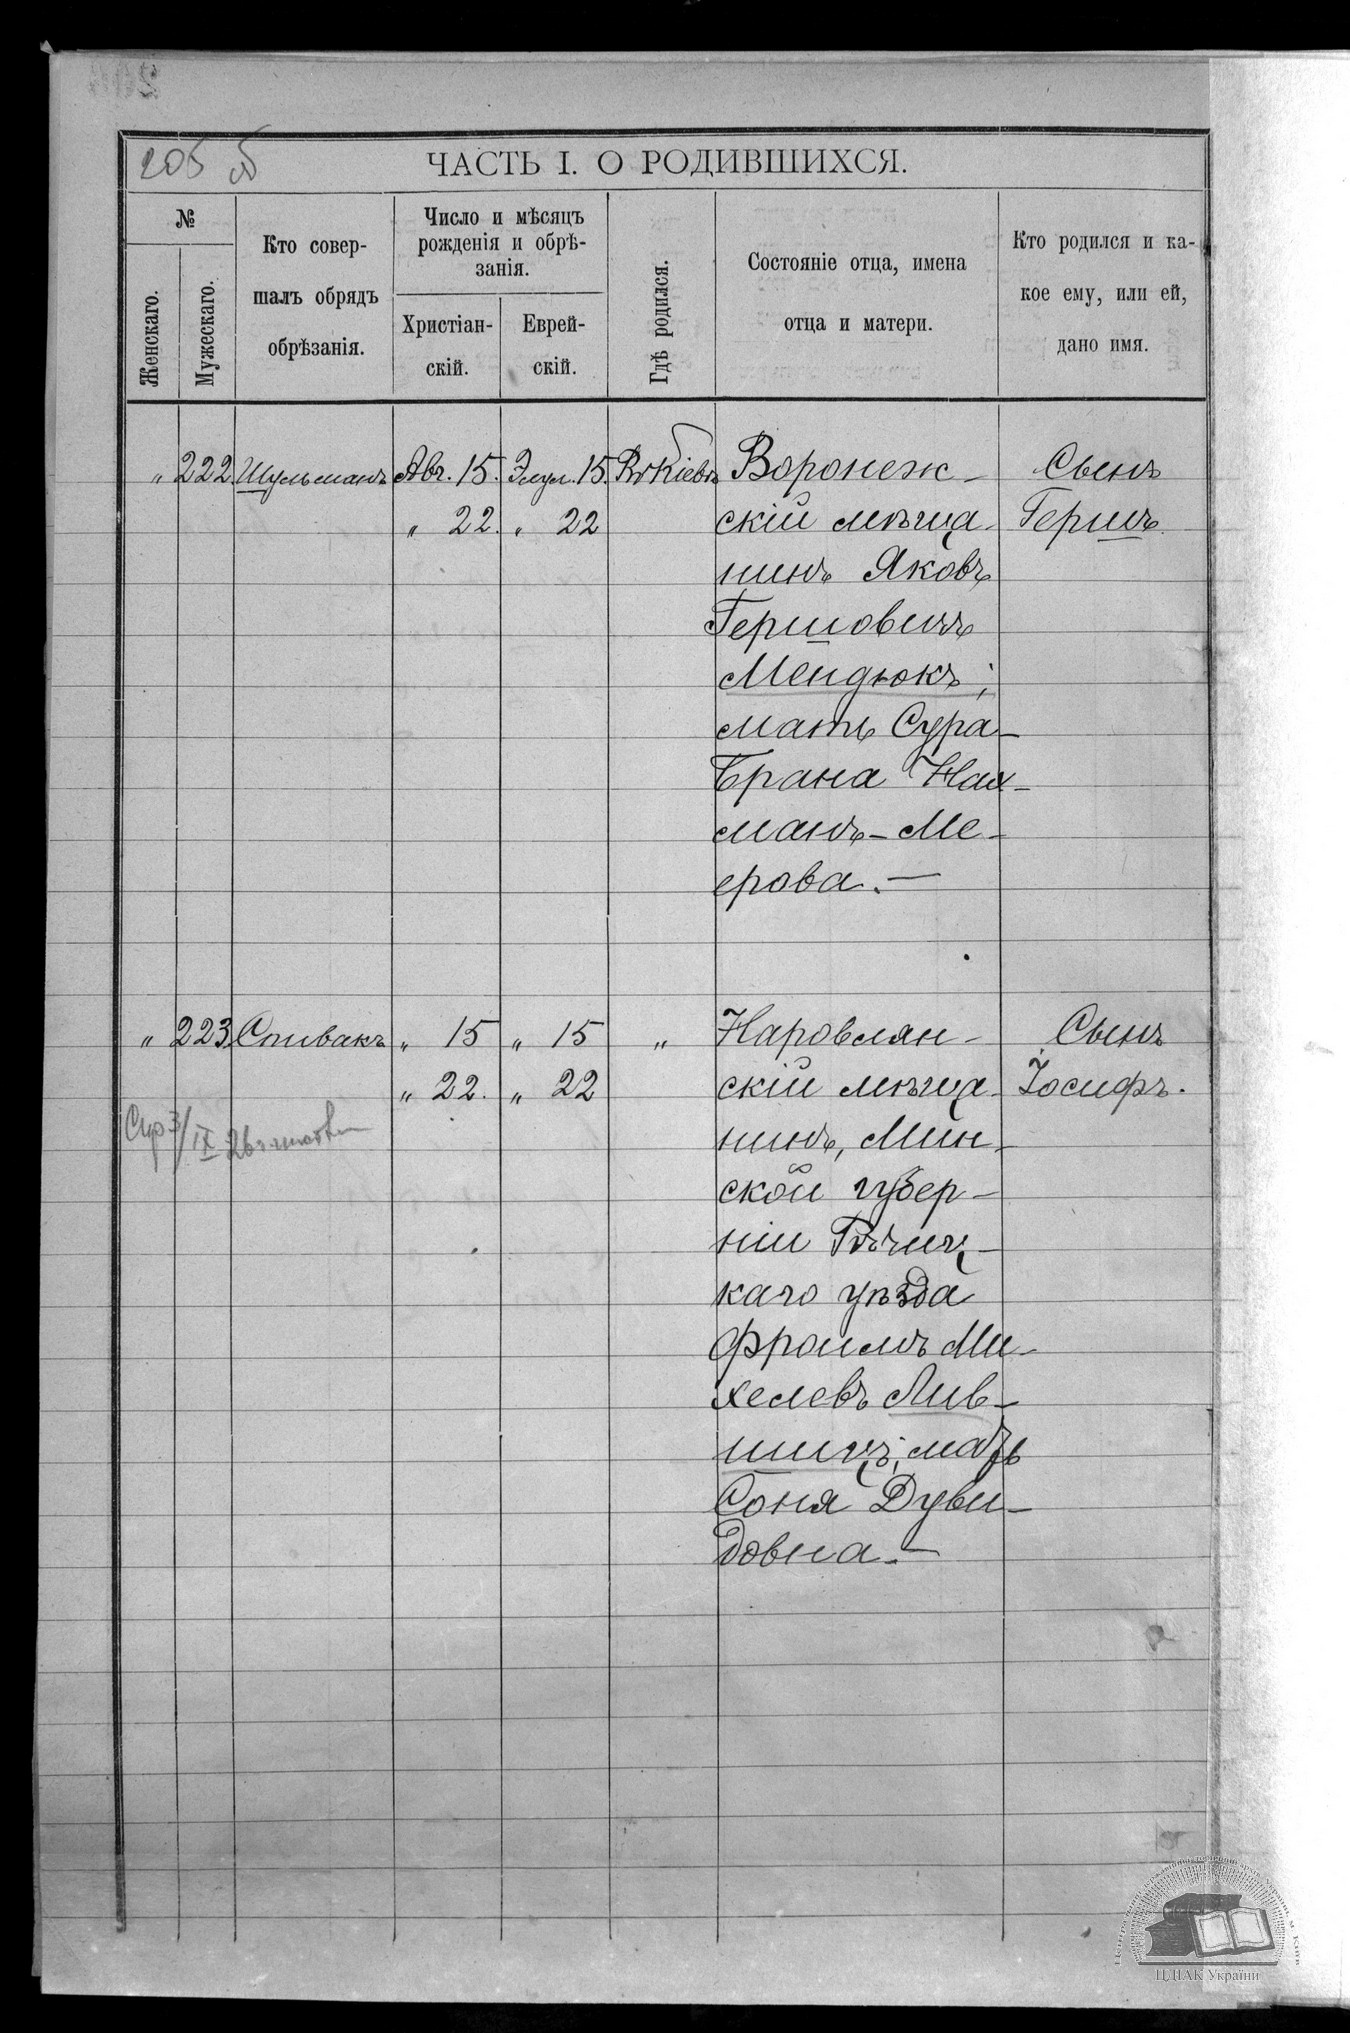 205 об
ЧАСТЬ I. О РОДИВШИХСЯ.
№
Женскаго.
Мужескаго.
Кто совер-
шалъ обрядъ
обрѣзанія.
Число и мѣсяцъ
рожденія и обрѣ-
занія.
Христіан-
скій.
Еврей-
скій.
Гдѣ родился.
Состояніе отца, имена
отца и матери.
Кто родился и ка-
кое ему, или ей,
дано имя.
" 222. Шульманъ Авг. 15. Элул. 15. Въ Кіевѣ Воронеж- Сынъ
" 22. " 22 скій мѣща- Гершъ.
нинъ Яковъ
Гершовичъ
Мендюкъ;
мать Сура-
Брана Нах-
манъ-Ме-
ерова.—
" 223. Спивакъ " 15 " 15 " Наровлян- Сынъ
" 22. " 22 скій мѣща- Іосифъ.
нинъ, Мин-
ской губер-
ніи Рѣчиц-
каго уѣзда
Фроимъ Ми-
хелевъ Лив-
шицъ; мать
Соня Дуви-
довна.—
3/IX
ЦДІАК України